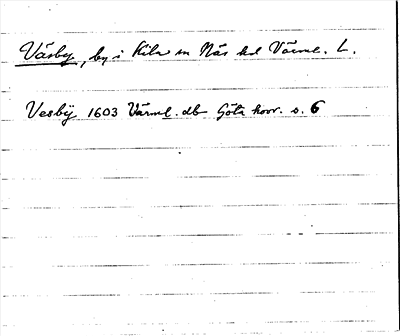 Väsby, by i Kila sn Näs hd Värml. L.
Vesbÿ 1603 Värml. db Göta hovr. s. 6